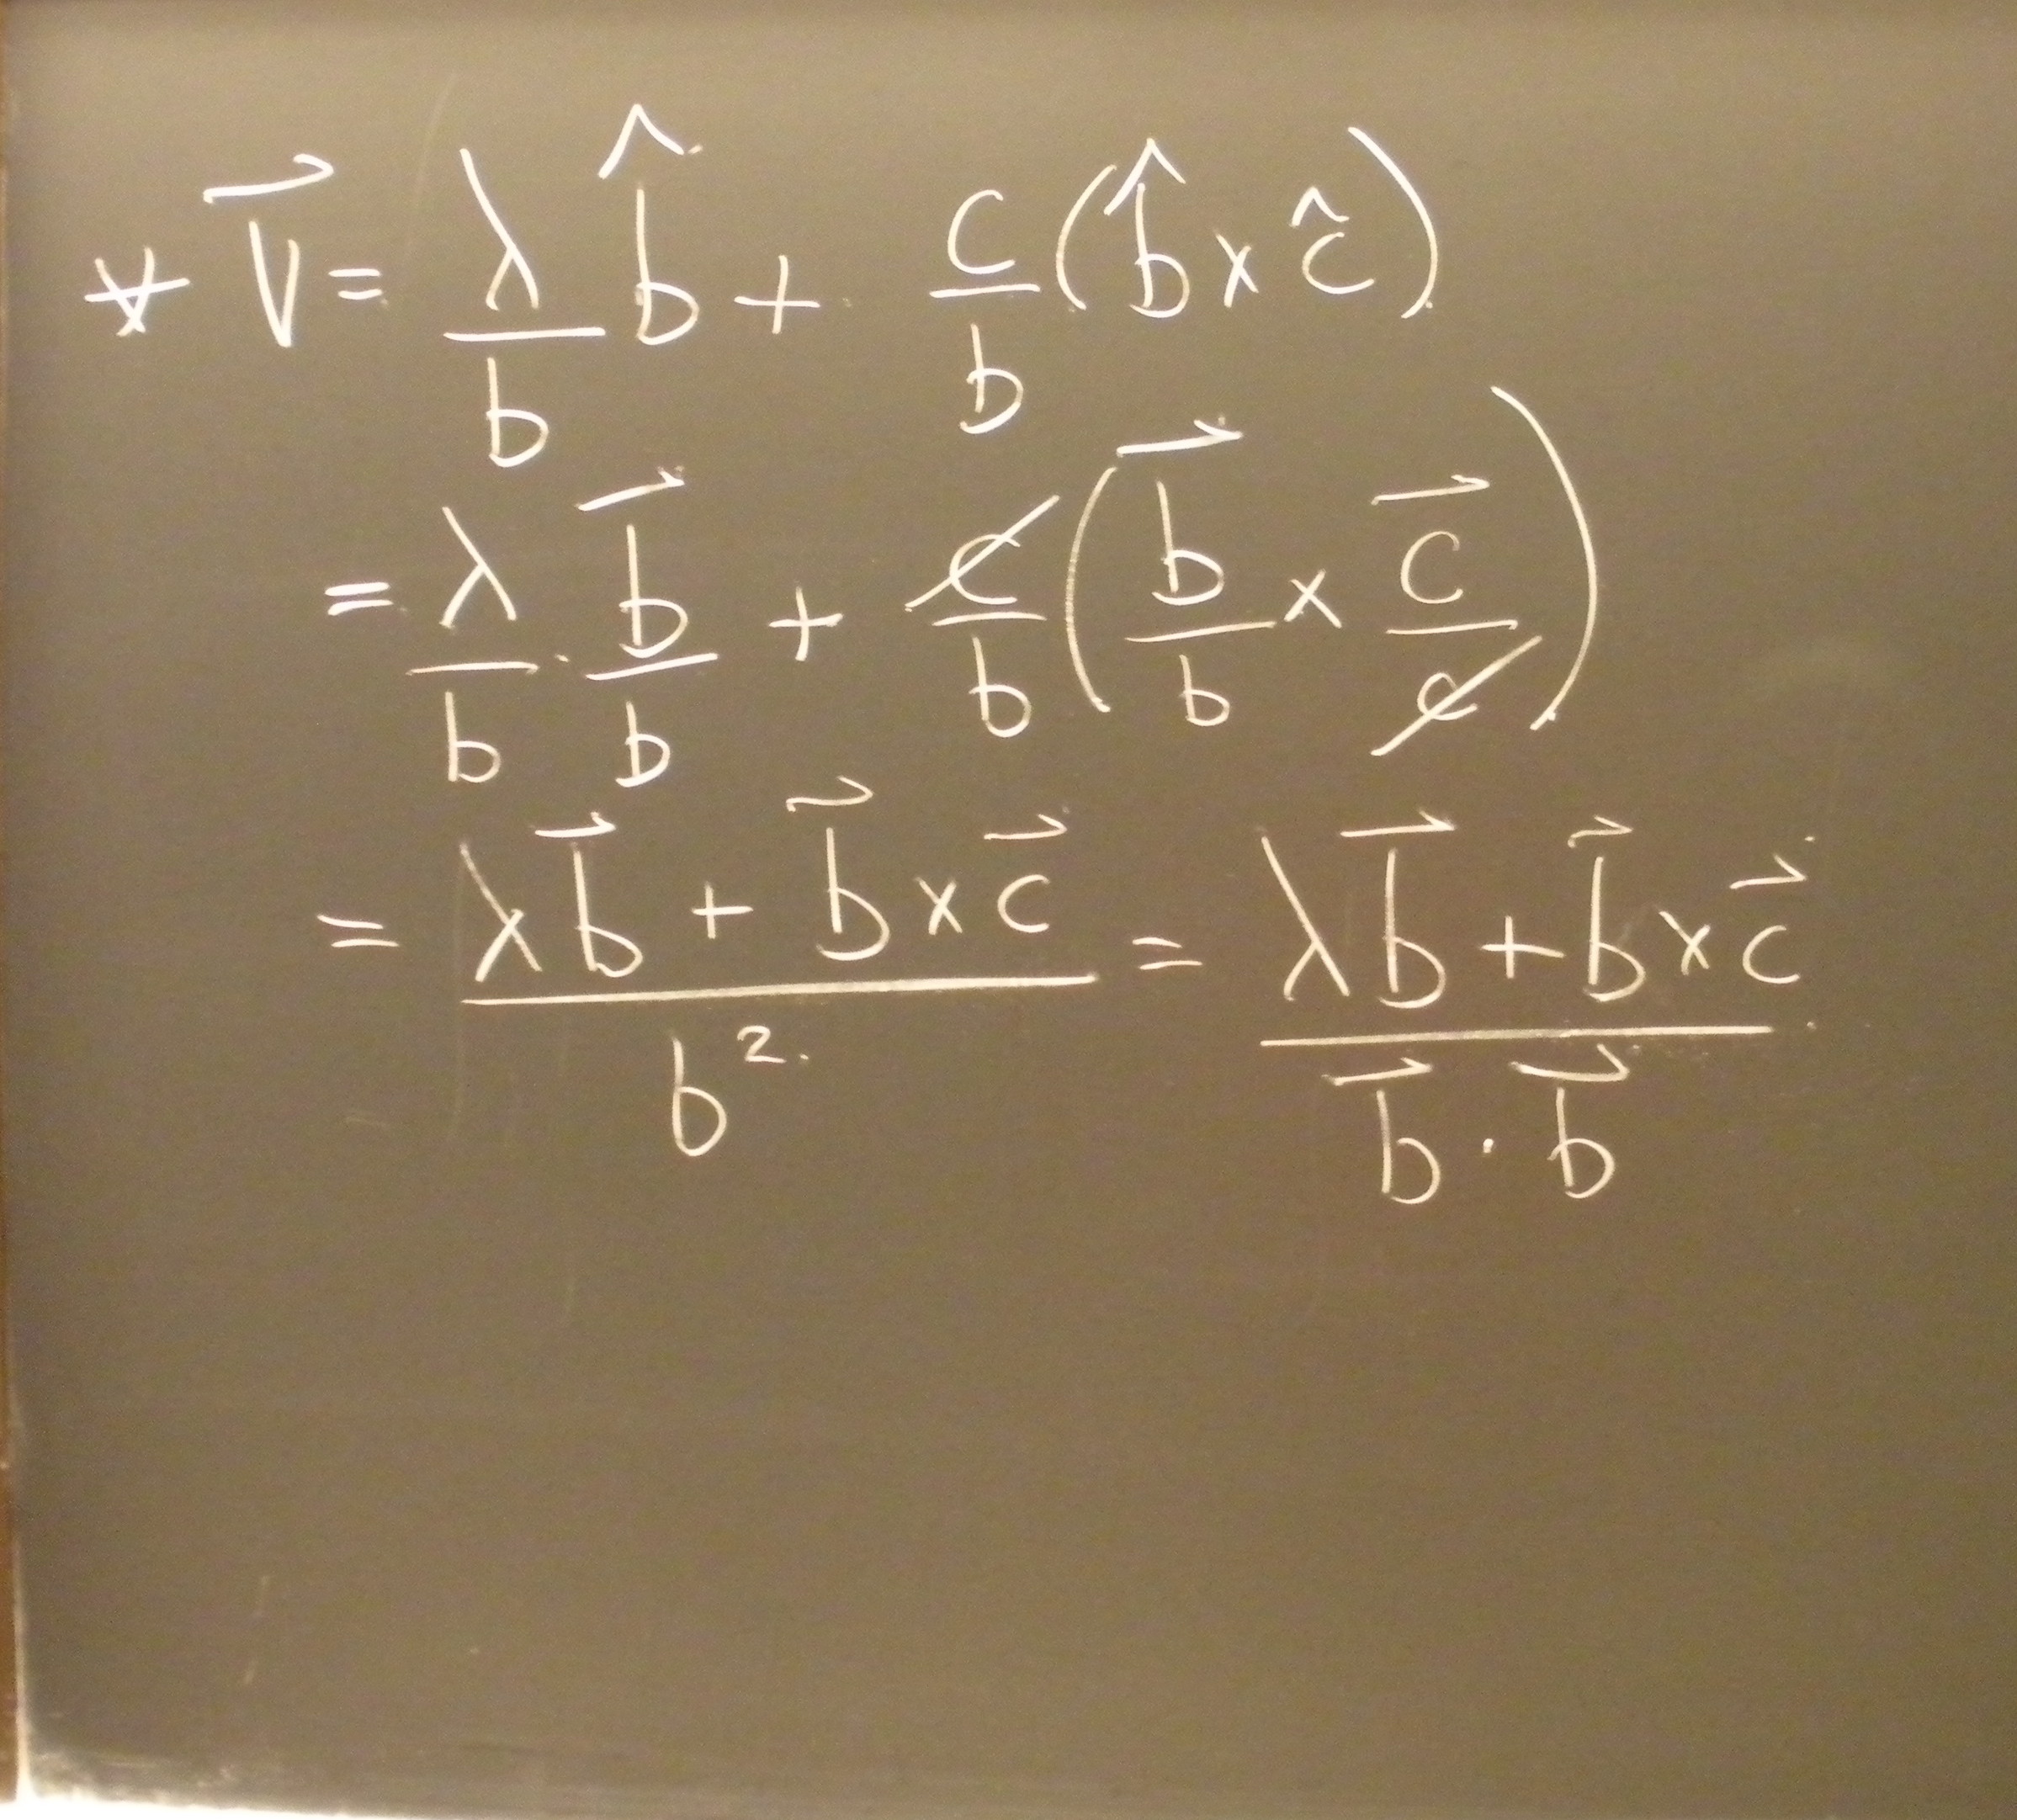 * $\vec{V} = \frac{\lambda}{b} \hat{b} + \frac{c}{b} (\hat{b} \times \hat{c})$
$= \frac{\lambda}{b} \cdot \frac{\vec{b}}{b} + \frac{\cancel{c}}{b} \left( \frac{\vec{b}}{b} \times \frac{\vec{c}}{\cancel{c}} \right)$
$= \frac{\lambda \vec{b} + \vec{b} \times \vec{c}}{b^2} = \frac{\lambda \vec{b} + \vec{b} \times \vec{c}}{\vec{b} \cdot \vec{b}}$